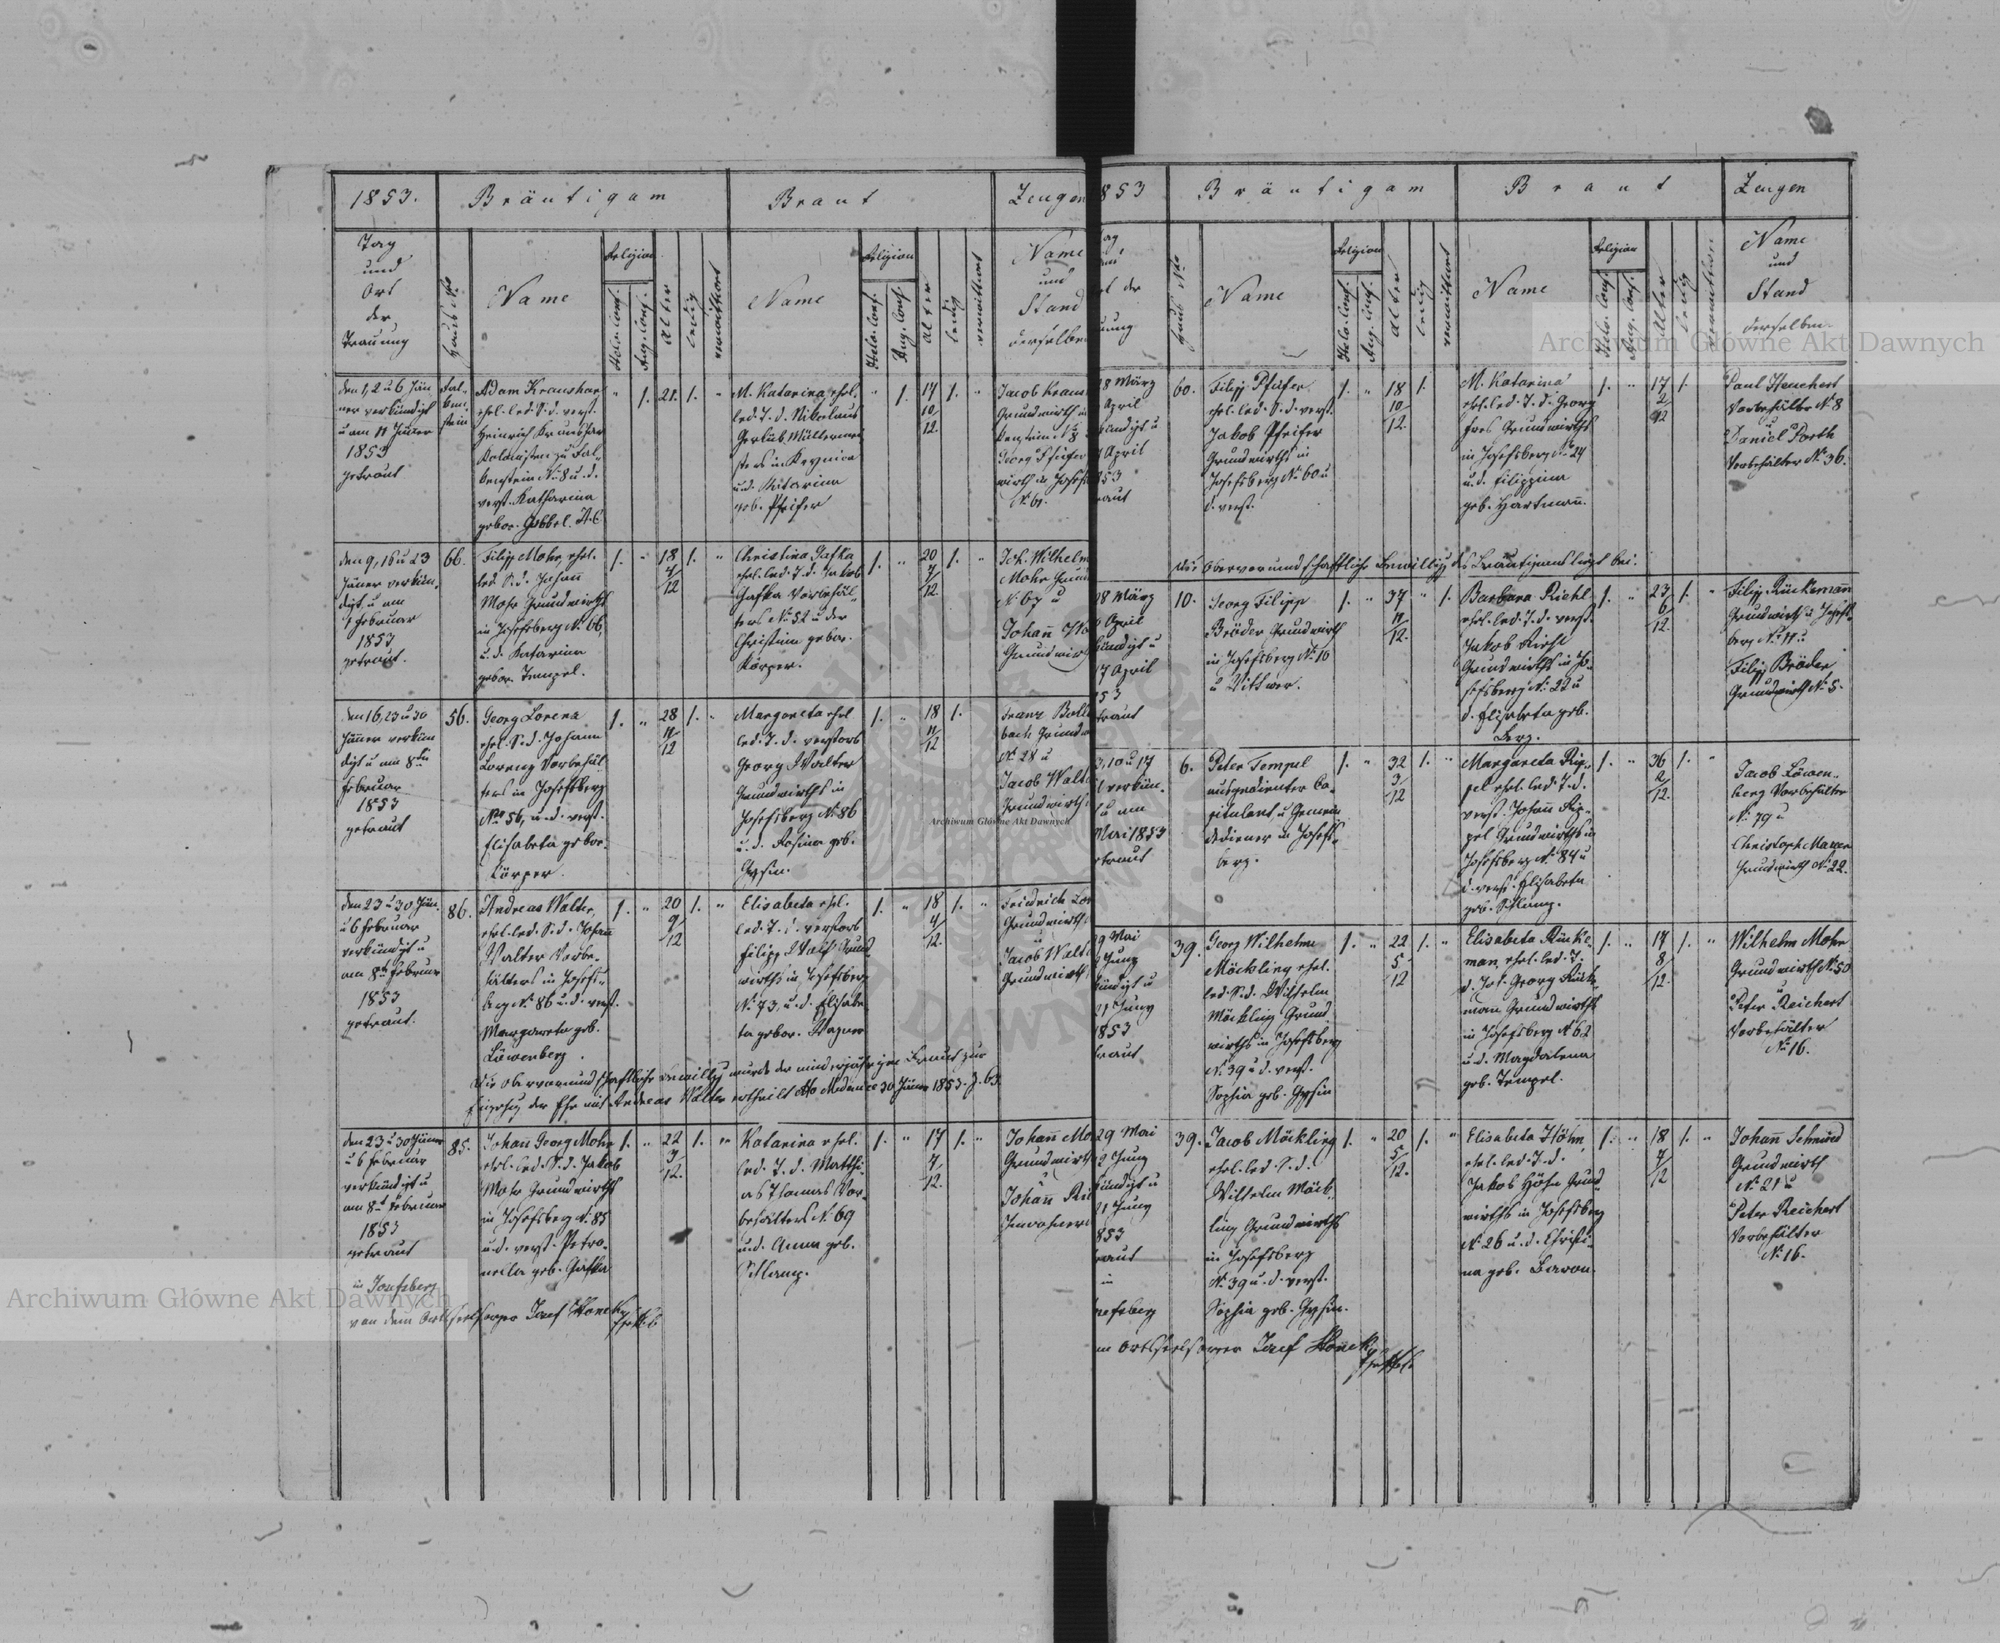 1853.
Bräutigam
Braut
Zeugen
Tag
und
Ort
der
Trauung
Haus Nro
Name
Religion
Helv. Conf.
Aug. Conf.
Alter
ledig
verwittwet
Name
Religion
Helv. Conf.
Aug. Conf.
Alter
ledig
verwittwet
Name
und
Stand
derselben
den 1, 2 u 6 Jän
ner verkündigt
u am 11 Jänner
1853
getraut
Fal-
ken-
stein
Adam Kraushar
ehel. led. S. d. verst.
Heinrich Kraushar
Kolonisten zu Fal-
kenstein N. 8 u. d.
verst. Katharina
gebor. Gobbel. A. C.
" 1. 21. 1. "
M. Katarina, ehel.
led. T. d. Nikolaus
Gerlub, Müllermei
sters in
u. d. Katarina
geb. Pfeifer
" 1. 17 10/12. 1. "
Jacob Kraus
Grundwirth in
kenstein N 8
Georg Pfeifer
wirth in Josefs
N. 61.
den 9, 16 u 23
Jäner verkün-
digt, u am
1 Februar
1853
getraut.
66.
Filipp Mohr, ehel.
led. S. d. Johann
Mohr Grundwirths
in Josefsberg N. 66
u. d. Katarina
gebor. Tempel.
1. " 18 4/12 1. "
Christina Gafka
ehel. led. T. d. Jakob
Gafka Vorbehäl-
ters N. 52 u der
Christina gebor.
Körper.
1. " 20 7/12. 1. "
Joh. Wilhelm
Mohr Grund
N. 67 u
Johann Mo
Grundwirth
den 16, 23 u 30
Jänner verkün
digt u am 8ten
Februar
1853
getraut
56.
Georg Lorenz
ehel. S. d. Johann
Lorenz Vorbehäl-
ters in Josefsberg
Nro 56, u. d. verst.
Elisabeta gebor.
Körper.
1. " 28 11/12 1. "
Margareta ehel
led. T. d. verstorb
Georg Walter
Grundwirths in
Josefsberg N. 86
u. d. Rosina geb.
Gysin.
1. " 18 11/12 1.
Franz Boll
bach Grundw
N. 24 u
Jacob Walt
Grundwirth
den 23 u 30 Jän.
u 6 Februar
verkündigt u
am 8ten Februar
1853
getraut.
86.
Andreas Walter,
ehel. led. S. d. Johann
Walter Vorbe-
hälters in Josefs-
berg N. 86 u. d. verst.
Margareta geb.
Löwenberg.
1. " 20 9/12 1. "
Elisabeta ehel.
led. T. d. verstorb
Filipp Wolf Grund
wirths in Josefsberg
N. 73, u. d. Elisabe
ta gebor. Wagner
1. " 18 4/12. 1. "
Friedrich Lor
Grundwirth
u
Jacob Walt
Grundwirth
Die obervormundschaftliche Bewillig wurde der minderjährigen Braut zur
Eingehung der Ehe mit Andreas Walter ertheilt dto Medenice 30 Jänner 1853. Z. 63.
den 23 u 30 Jänner
u 6 Februar
verkündigt u
am 8ten Februar
1853
getraut
85.
Johann Georg Mohr
ehel. led. S. d. Jakob
Mohr Grundwirths
in Josefsberg N. 85
u. d. verst. Petro-
nella geb. Gafka
1. " 22 3/12. 1. "
Katarina ehel.
led. T. d. Matthi-
as Thomas Vor-
behälters N. 69
u. d. Anna geb.
Schlamp.
1. " 17 7/12. 1. "
Johann Mo
Grundwirth
Johann Rie
Inwohner
in Josefsberg
von dem Ortsseelsorger Josef Skoneky
853
Bräutigam
Braut
Zeugen
Haus Nro
Name
Religion
Helv. Conf.
Aug. Conf.
Alter
ledig
verwittwet
Name
Religion
Helv. Conf.
Aug. Conf.
Alter
ledig
verwittwet
Name
und
Stand
derselben
28 März
April
kündigt u
April
853
traut
60.
Filipp Pfeifer
ehel. led. S. d. verst.
Jakob Pfeifer
Grundwirths in
Josefsberg N. 60 u
d. verst.
1. " 18 10/12. 1.
M. Katarina
ehel. led. T. d. Georg
Fries Grundwirths
in Josefsberg N. 24
u. d. Filippina
geb. Hartmann.
1. " 17 2/12 1.
Paul Heuchert
Vorbehälter N. 8
u
Daniel Porth
Vorbehälter N. 36.
Die Obervormundschaftliche Bewillig. des Bräutigams liegt bei.
28 März
April
kündigt u
17 April
53
traut
10.
Georg Filipp
Bröder Grundwirth
in Josefsberg N. 10
u Wittwer.
1. " 37 11/12. " 1.
Barbara Riehl
ehel. led. T. d. verst.
Jakob Riehl
Grundwirths in Jo-
sefsberg N. 22 u
d. Elisabeta geb.
1. " 23 6/12. 1. "
Filipp Rückemann
Grundwirth u Josefs-
berg N. 11 u
Filipp Bröder
Grundwirth N. 5.
3, 10 u 17
verkün-
u am
Mai 1853
traut
6.
Peter Tempel
ausgedienter Ca-
pitulant u Gemein
dediener in Josefs-
berg.
1. " 32 3/12 1. "
Margareta Rip-
pel ehel. led. T. d.
verst. Johann Rip-
pel Grundwirths in
Josefsberg N. 84 u
d. verst. Elisabeta
geb. Schlamp.
1. " 36 2/12. 1. "
Jacob Löwen-
berg Vorbehälter
N. 79 u
Christoph Mauer
Grundwirth N. 22.
29 Mai
Juny
kündigt u
21 Juny
1853
traut
39.
Georg Wilhelm
Möckling ehel.
led. S. d. Wilhelm
Möckling Grund
wirths in Josefsberg
N. 39 u d. verst.
Sophia geb. Gysin
1. " 22 5/12 1. "
Elisabeta Rücke-
man, ehel. led. T.
d. Joh. Georg Rück
man Grundwirths
in Josefsberg N 62
u. d. Magdalena
geb. Tempel.
1. " 17 8/12. 1. "
Wilhelm Mohr
Grundwirth N. 50
u
Peter Reichert
Vorbehälter
N. 16.
29 Mai
2 Juny
kündigt u
21 Juny
853
traut
in
Josefsberg
39.
Jacob Möckling
ehel. led. S. d.
Wilhelm Möck-
ling Grundwirths
in Josefsberg
N. 39 u. d. verst.
Sophia geb. Gysin.
1. " 20 5/12. 1. "
Elisabeta Höhn,
ehel. led. T. d.
Jakob Höhn Grund-
wirths in Josefsberg
N. 26 u. d. Christi-
na geb. Baron.
1. " 18 7/12 1. "
Johann Schmied
Grundwirth
N. 21 u
Peter Reichert
Vorbehälter
N. 16.
m Ortsseelsorger Josef Skoneky
Archiwum Główne Akt Dawnych
Archiwum Główne Akt Dawnych
Archiwum Główne Akt Dawnych